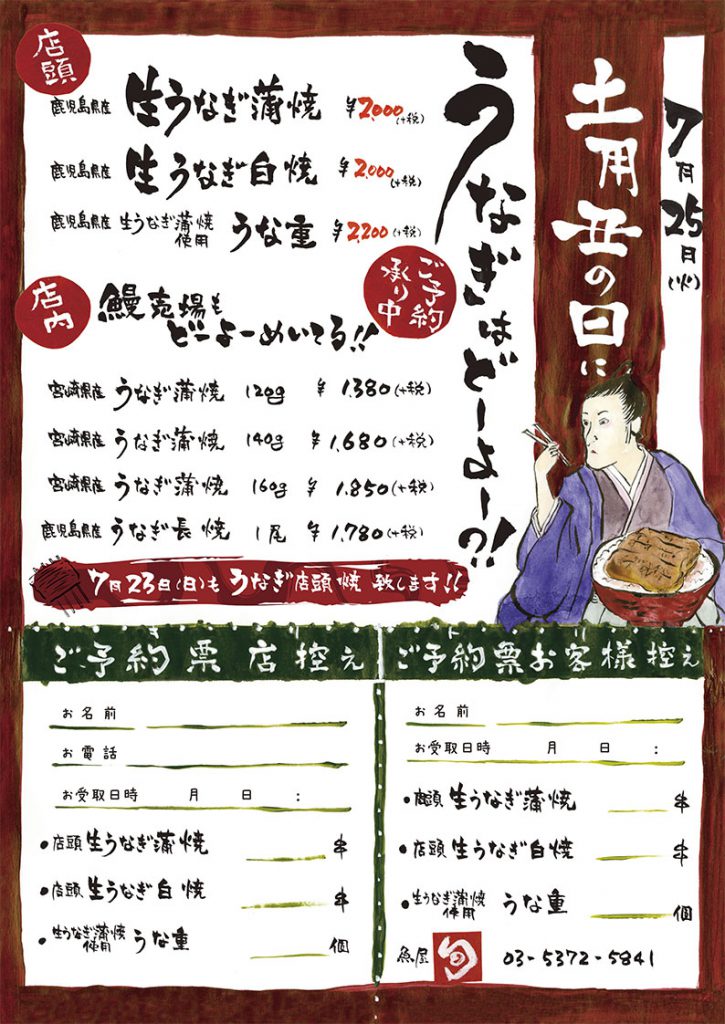 7月25日(火)
土用丑の日に
うなぎはどーよー?!
店頭
鹿児島県産 生うなぎ蒲焼 ¥2,000(+税)
鹿児島県産 生うなぎ白焼 ¥2,000(+税)
鹿児島県産 生うなぎ蒲焼使用 うな重 ¥2,200(+税)
ご予約承り中
店内
鰻売場も
どーよーめいてる!!
宮崎県産 うなぎ蒲焼 120g ¥1.380(+税)
宮崎県産 うなぎ蒲焼 140g ¥1,680(+税)
宮崎県産 うなぎ蒲焼 160g ¥1.850(+税)
鹿児島県産 うなぎ長焼 1尾 ¥1,780(+税)
7月23日(日)も うなぎ店頭焼 致します!!
ご予約票 店控え
お名前
お電話
お受取日時 月 日 :
•店頭 生うなぎ蒲焼 串
•店頭 生うなぎ白焼 串
•生うなぎ蒲焼使用 うな重 個
ご予約票お客様控え
お名前
お受取日時 月 日 :
•店頭 生うなぎ蒲焼 串
•店頭 生うなぎ白焼 串
•生うなぎ蒲焼使用 うな重 個
魚屋 旬 03-5372-5841